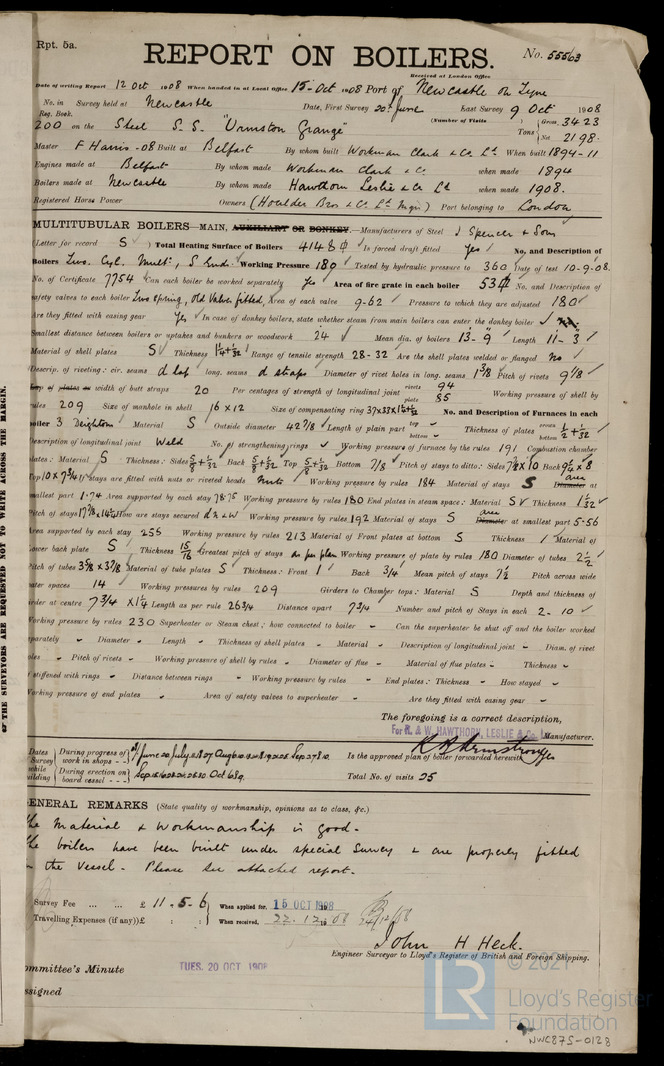 Rpt. 5a.
REPORT ON BOILERS.
No. 55563
Received at London Office
Date of writing Report 12 Oct 1908 When handed in at Local Office 15 Oct 1908 Port of Newcastle on Tyne
No. in Reg. Book. Survey held at Newcastle Date, First Survey 20th June Last Survey 9 Oct 1908
(Number of Visits
200 on the Steel S.S. "Urmston Grange" Tons { Gross 3423 Net 2198
Master F Harris -08 Built at Belfast By whom built Workman Clark & Co. Ld When built 1894-11
Engines made at Belfast By whom made Workman Clark & Co. when made 1894
Boilers made at Newcastle By whom made Hawthorn Leslie & Co Ld when made 1908.
Registered Horse Power Owners (Houlder Bros & Co. Ld Mgrs) Port belonging to London
MULTITUBULAR BOILERS - MAIN, AUXILIARY OR DONKEY. - Manufacturers of Steel J Spencer & Sons
(Letter for record S) Total Heating Surface of Boilers 4148 ☐ Is forced draft fitted Yes No. and Description of
Boilers Two Cyl. Mult., S End. Working Pressure 180 Tested by hydraulic pressure to 360 Date of test 10-9-08.
No. of Certificate 7754 Can each boiler be worked separately Yes Area of fire grate in each boiler 53 ☐ No. and Description of
safety valves to each boiler Two spring, old valves fitted, Area of each valve 9-62 Pressure to which they are adjusted 180
Are they fitted with easing gear Yes In case of donkey boilers, state whether steam from main boilers can enter the donkey boiler
Smallest distance between boilers or uptakes and bunkers or woodwork 24 Mean dia. of boilers 13-9 Length 11-3
Material of shell plates S Thickness 1 1/4 + 1/32 Range of tensile strength 28-32 Are the shell plates welded or flanged No
Descrip. of riveting: cir. seams d lap long. seams d straps Diameter of rivet holes in long. seams 1 3/8 Pitch of rivets 9 1/8
Lap of plates or width of butt straps 20 Per centages of strength of longitudinal joint rivets 94 plate 85 Working pressure of shell by
rules 209 Size of manhole in shell 16 x 12 Size of compensating ring 37x33x1 1/4+1/32 No. and Description of Furnaces in each
boiler 3 Deighton Material S Outside diameter 42 7/8 Length of plain part top bottom Thickness of plates crown bottom 1/2 + 1/32
Description of longitudinal joint Weld No. of strengthening rings Working pressure of furnace by the rules 191 Combustion chamber
plates: Material S Thickness: Sides 5/8 + 1/32 Back 5/8 + 1/32 Top 5/8 + 1/32 Bottom 7/8 Pitch of stays to ditto: Sides 7 1/2 x 10 Back 9 1/2 x 8
Top 10 x 7 3/4 If stays are fitted with nuts or riveted heads Nuts Working pressure by rules 184 Material of stays S Diameter area at
smallest part 1-74 Area supported by each stay 78-75 Working pressure by rules 180 End plates in steam space: Material S Thickness 1 1/32
Pitch of stays 17 7/8 x 14 1/2 How are stays secured d n & w Working pressure by rules 192 Material of stays S Diameter area at smallest part 5-56
Area supported by each stay 255 Working pressure by rules 213 Material of Front plates at bottom S Thickness 1 Material of
Lower back plate S Thickness 15/16 Greatest pitch of stays as per plan Working pressure of plate by rules 180 Diameter of tubes 2 1/2
Pitch of tubes 3 5/8 x 3 7/8 Material of tube plates S Thickness: Front 1 Back 3/4 Mean pitch of stays 7 1/2 Pitch across wide
water spaces 14 Working pressures by rules 209 Girders to Chamber tops: Material S Depth and thickness of
girder at centre 7 3/4 x 1 1/4 Length as per rule 26 3/4 Distance apart 7 3/4 Number and pitch of Stays in each 2 - 10
Working pressure by rules 230 Superheater or Steam chest; how connected to boiler - Can the superheater be shut off and the boiler worked
separately - Diameter - Length - Thickness of shell plates - Material - Description of longitudinal joint - Diam. of rivet
holes - Pitch of rivets - Working pressure of shell by rules - Diameter of flue - Material of flue plates - Thickness -
If stiffened with rings - Distance between rings - Working pressure by rules - End plates: Thickness - How stayed -
Working pressure of end plates - Area of safety valves to superheater - Are they fitted with easing gear -
The foregoing is a correct description,
For R. & W. HAWTHORN, LESLIE & Co. Ld. Manufacturer.
R B Armstrong
Dates of Survey while building
During progress of work in shops - -
During erection on board vessel - - -
Is the approved plan of boiler forwarded herewith Yes
Total No. of visits 25
GENERAL REMARKS (State quality of workmanship, opinions as to class, &c.)
The Material & Workmanship is good.
The boilers have been built under special Survey & are properly fitted
in the Vessel. Please see attached report.
Survey Fee ... ... £ 11 . 5 . 6 When applied for, 15 OCT 1908
Travelling Expenses (if any) £ : : When received, 22.12.1908
John H Heck.
Engineer Surveyor to Lloyd's Register of British and Foreign Shipping.
Committee's Minute TUES. 20 OCT 1908
Assigned
OF THE SURVEYORS ARE REQUESTED NOT TO WRITE ACROSS THE MARGIN.
© 2021
LR
Lloyd's Register
Foundation
NWC875-0128